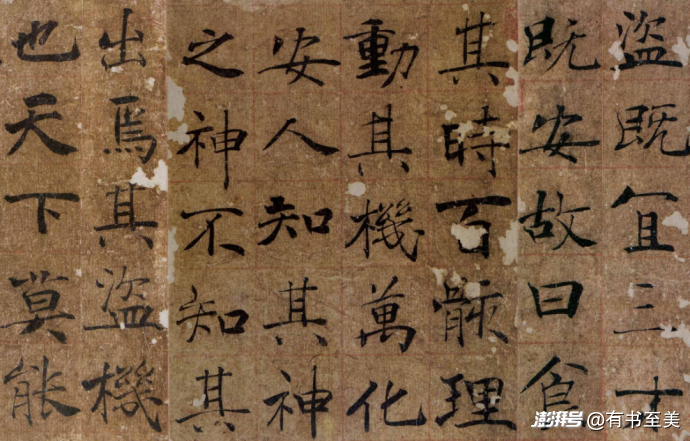 盜既宜三才
既安故曰食
其時百骸理
動其機萬化
安人知其神
之神不知其
出焉其盜機
也天下莫能
澎湃号@有书至美